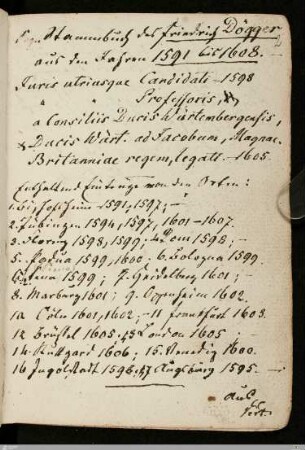 Stammbuch des Friedrich Dögger
aus den Jahren 1591 bis 1608.
Juris utriusque Candidati - 1598
" " Professoris,
a Consiliis Ducis Würtembergensis,
Ducis Würt. ad Jacobum, Magnae
Britanniae regem, legati - 1605.
Enthaltend Einträge von den Orten:
1591, 1597; -
2. Tübingen 1594, 1597, 1601 - 1607.
3. 1598, 1599; 4. Rom 1598; -
5. Padua 1599, 1600. 6. Bologna 1599.
Siena 1599; 7. Heidelberg 1601; -
8. Marburg 1601; 9. Oppenheim 1602.
10. Cöln 1601, 1602, - 11. Frankfurt 1603.
12. Brüssel 1605. 13. London 1605;
14. Stuttgard 1606; 15. Venedig 1600.
16. Ingolstadt 1596. 17. Augsburg 1595. -